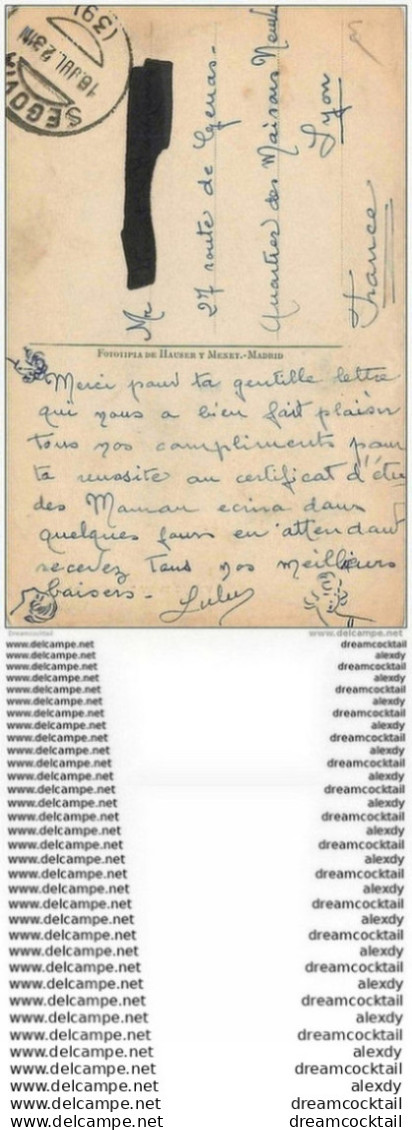 SEGOVIA
18 JUL. 23 1N
(39)
Mr
27 route de Genas-
Quartier des Maisons Neuves
Lyon
France
FOTOTIPIA DE HAUSER Y MENET.-MADRID
Merci pour ta gentille lettre
qui nous a bien fait plaisir
tous nos compliments pour
ta reussite au certificat d'étu
des Maman ecrira dans
quelques jours en attendant
recevez tous nos meilleurs
baisers- Lulu
Dreamcocktail www.delcampe.net
www.delcampe.net dreamcocktail
www.delcampe.net alexdy
www.delcampe.net dreamcocktail
www.delcampe.net alexdy
www.delcampe.net dreamcocktail
www.delcampe.net alexdy
www.delcampe.net dreamcocktail
www.delcampe.net alexdy
www.delcampe.net dreamcocktail
www.delcampe.net alexdy
www.delcampe.net dreamcocktail
www.delcampe.net alexdy
www.delcampe.net dreamcocktail
www.delcampe.net alexdy
www.delcampe.net dreamcocktail
www.delcampe.net alexdy
www.delcampe.net dreamcocktail
www.delcampe.net alexdy
www.delcampe.net dreamcocktail
www.delcampe.net alexdy
www.delcampe.net dreamcocktail
www.delcampe.net alexdy
www.delcampe.net dreamcocktail
www.delcampe.net alexdy
www.delcampe.net dreamcocktail
www.delcampe.net alexdy
www.delcampe.net dreamcocktail
www.delcampe.net alexdy
www.delcampe.net dreamcocktail
www.delcampe.net alexdy
www.delcampe.net dreamcocktail
www.delcampe.net alexdy
www.delcampe.net dreamcocktail
www.delcampe.net dreamcocktail